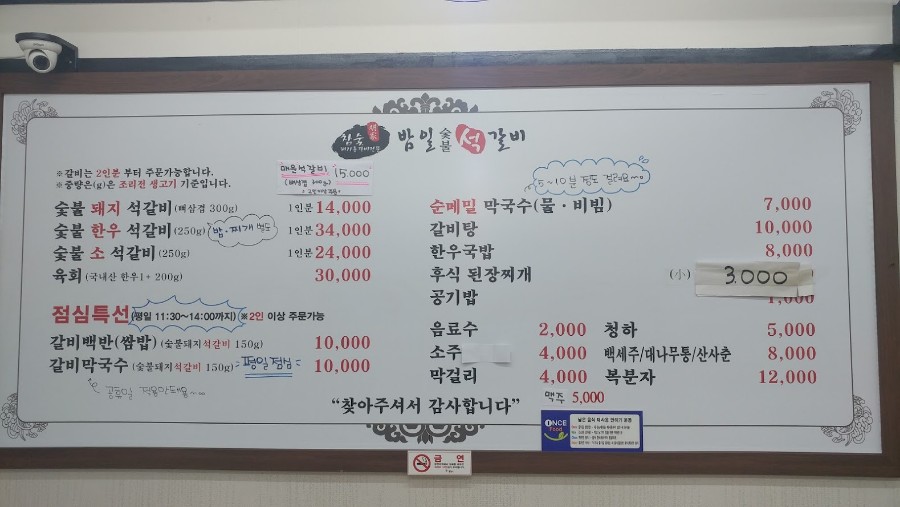 참숯
밤일 숯불 석갈비
※갈비는 2인분 부터 주문가능합니다.
※중량은(g)은 조리전 생고기 기준입니다.
매운석갈비 15,000
(뼈삼겹 300g)
숯불 돼지 석갈비 (뼈삼겹 300g) 1인분 14,000
숯불 한우 석갈비 (250g) 밥·찌개 별도 1인분 34,000
숯불 소 석갈비 (250g) 1인분 24,000
육회 (국내산 한우1+ 200g) 30,000
점심특선 (평일 11:30~14:00까지) ※2인 이상 주문가능
갈비백반(쌈밥) (숯불돼지석갈비 150g) 10,000
갈비막국수 (숯불돼지석갈비 150g) 평일점심 10,000
공휴일 적용안돼용~
5~10분 정도 걸려요~
순메밀 막국수(물·비빔) 7,000
갈비탕 10,000
한우국밥 8,000
후식 된장찌개 (小) 3.000
공기밥 1,000
음료수 2,000 청하 5,000
소주 4,000 백세주/대나무통/산사춘 8,000
막걸리 4,000 복분자 12,000
맥주 5,000
“찾아주셔서 감사합니다”
ONCE Food
금연